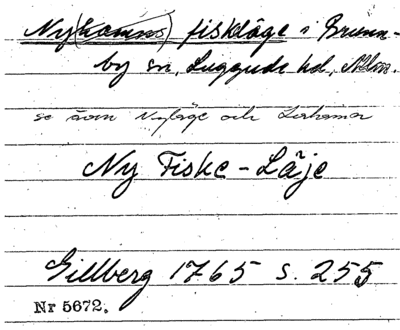 Ny(hamns) fiskläge i Brunn-
by sn, Luggude hd, Mlm.
se även Nyläge och Lerhamn
Ny Fiske-Läje
Gillberg 1765 s. 255
Nr 5672.